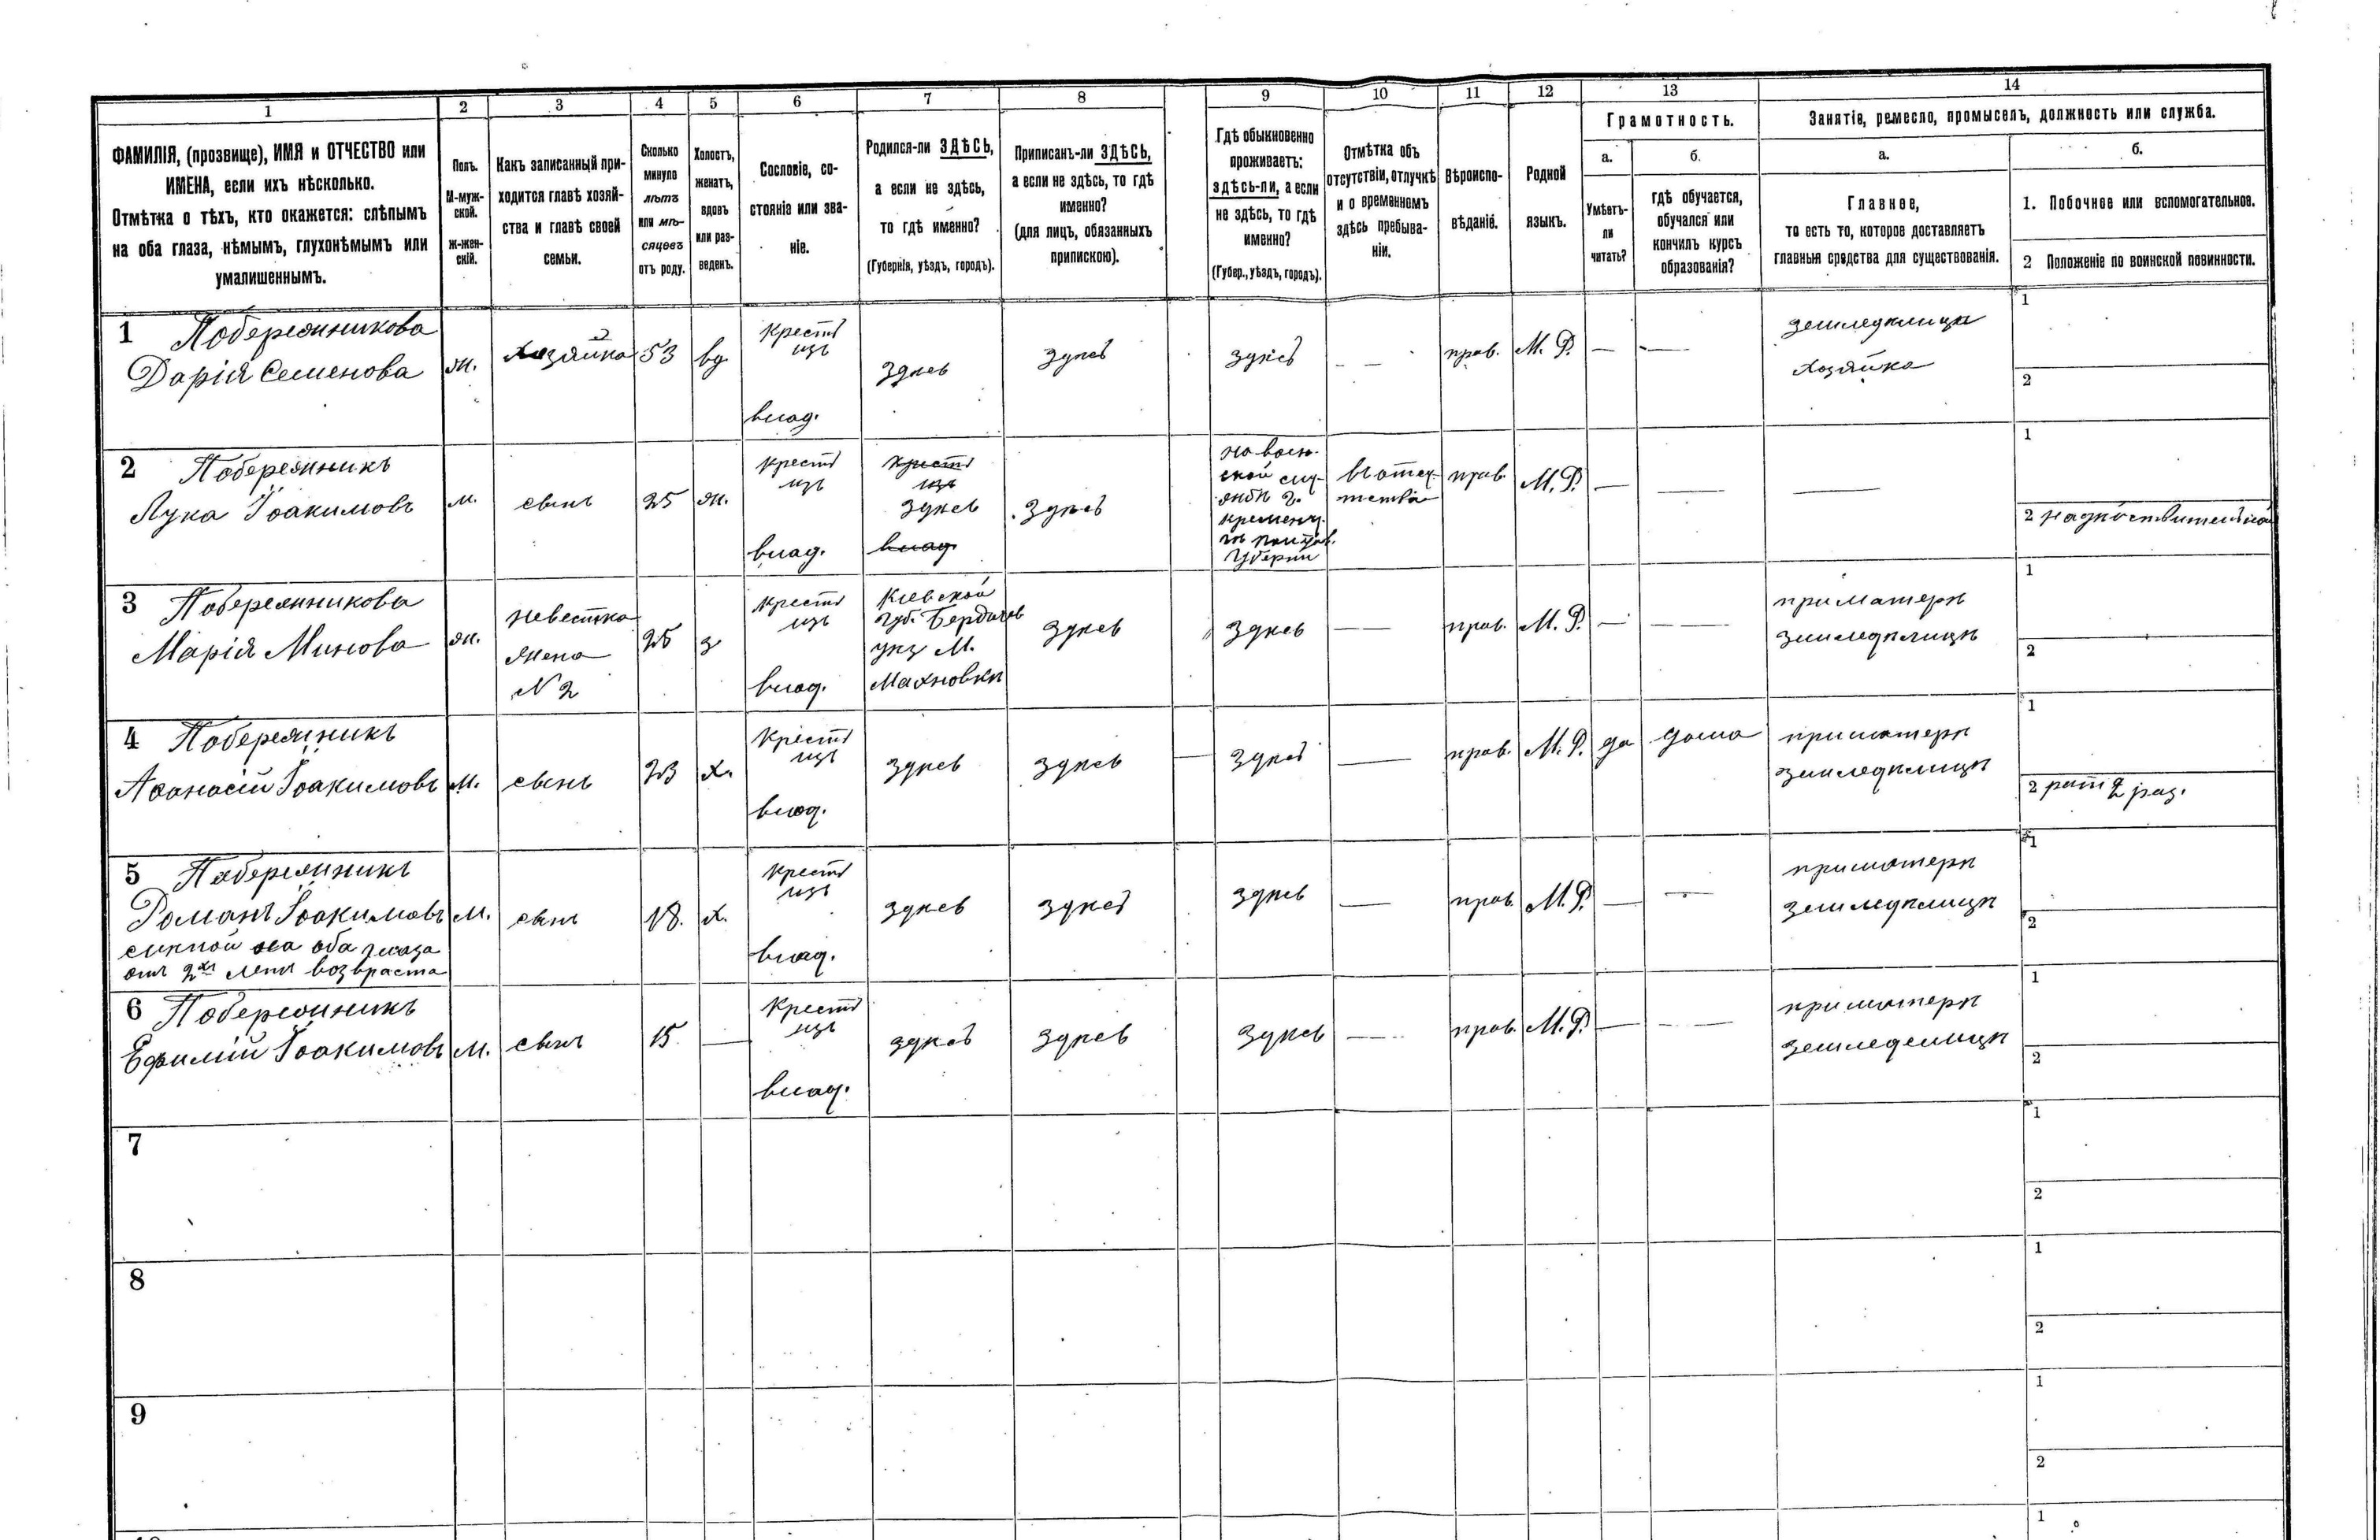 1 2 3 4 5 6 7 8 9 10 11 12 13 14
ФАМИЛІЯ, (прозвище), ИМЯ и ОТЧЕСТВО или
ИМЕНА, если ихъ нѣсколько.
Отмѣтка о тѣхъ, кто окажется: слѣпымъ
на оба глаза, нѣмымъ, глухонѣмымъ или
умалишеннымъ.
Полъ.
М-муж-
ской.
ж-жен-
скій.
Какъ записанный при-
ходится главѣ хозяй-
ства и главѣ своей
семьи.
Сколько
минуло
лѣтъ
или мѣ-
сяцевъ
отъ роду.
Холостъ,
женатъ,
вдовъ
или раз-
веденъ.
Сословіе, со-
стояніе или зва-
ніе.
Родился-ли ЗДѢСЬ,
а если не здѣсь,
то гдѣ именно?
(Губернія, уѣздъ, городъ).
Приписанъ-ли ЗДѢСЬ,
а если не здѣсь, то гдѣ
именно?
(для лицъ, обязанныхъ
припискою).
Гдѣ обыкновенно
проживаетъ:
здѣсь-ли, а если
не здѣсь, то гдѣ
именно?
(Губер., уѣздъ, городъ).
Отмѣтка объ
отсутствіи, отлучкѣ
и о временномъ
здѣсь пребыва-
ніи.
Вѣроиспо-
вѣданіе.
Родной
языкъ.
Грамотность.
а.
Умѣетъ-
ли
читать?
б.
гдѣ обучается,
обучался или
кончилъ курсъ
образованія?
Занятіе, ремесло, промыселъ, должность или служба.
а.
Главное,
то есть то, которое доставляетъ
главныя средства для существованія.
б.
1. Побочное или вспомогательное.
2 Положеніе по воинской повинности.
1 Побережникова
Дарія Семенова
ж.
хозяйка
53
вд
крестъ
изъ
влад.
здѣсь
здѣсь
здѣсь
— —
прав.
М. Р.
—
—
земледѣлица
хозяйка
1
2
2 Побережникъ
Лука Іоакимовъ
м.
сынъ
25
ж.
крестъ
изъ
влад.
крестъ
изъ
здѣсь
влад
здѣсь
на воен-
ской слу-
жбѣ г.
кременч.
гѣ полтав.
губерніи
въ отсут
тствіи
прав.
М. Р.
—
—
—
1
2 на дѣйствительной
3 Побережникова
Марія Минова
ж.
невестка
жена
№ 2
25
з
крестъ
изъ
влад.
Кіевской
губ. Бердичев
уѣз М.
Махновки
здѣсь
здѣсь
—
прав.
М. Р.
—
—
при матерѣ
земледѣлицѣ
1
2
4 Побережникъ
Аѳанасій Іоакимовъ
М.
сынъ
23
х.
крестъ
изъ
влад.
здѣсь
здѣсь
—
здѣсь
—
прав.
М. Р.
да
дома
при матерѣ
земледѣлицѣ
1
2 рат 2 раз.
5 Побережникъ
Романъ Іоакимовъ
слѣпой на оба глаза
отъ 2хъ летъ возвраста
М.
сынъ
18.
х.
крестъ
изъ
влад.
здѣсь
здѣсь
здѣсь
—
прав.
М. Р.
—
—
при матерѣ
земледѣлицѣ
1
2
6 Побережникъ
Ефимій Іоакимовъ
М.
сынъ
15
—
крестъ
изъ
влад.
здѣсь
здѣсь
здѣсь
—
прав.
М. Р.
—
—
при матерѣ
земледелицѣ
1
2
7
1
2
8
1
2
9
1
2
1